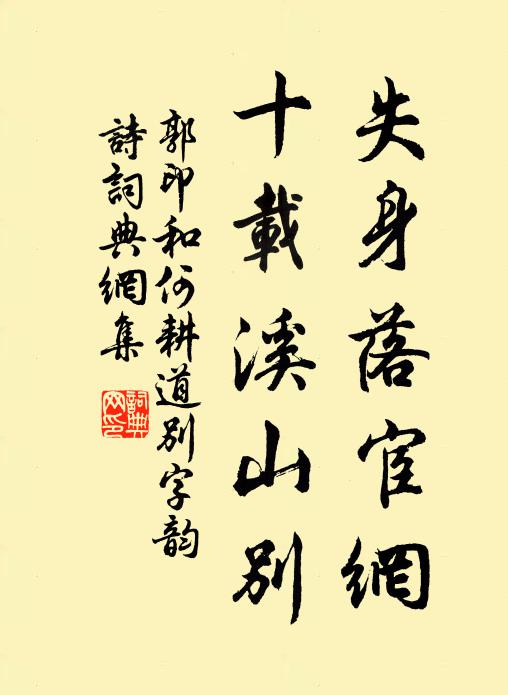 失身落宦網
十載溪山別
郭印和何耕道別字韵
詩詞典網集
詞典
网印